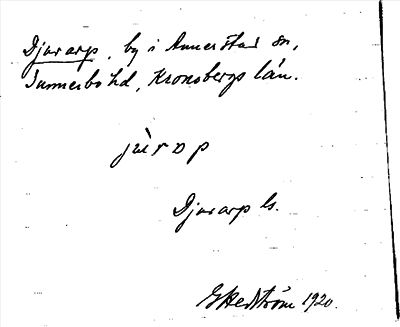 Djurarp, by i Annerstad sn,
Sunnerbo hd, Kronobergs län.
jùrɒp
Djurarp ls.
G Hedström 1920.